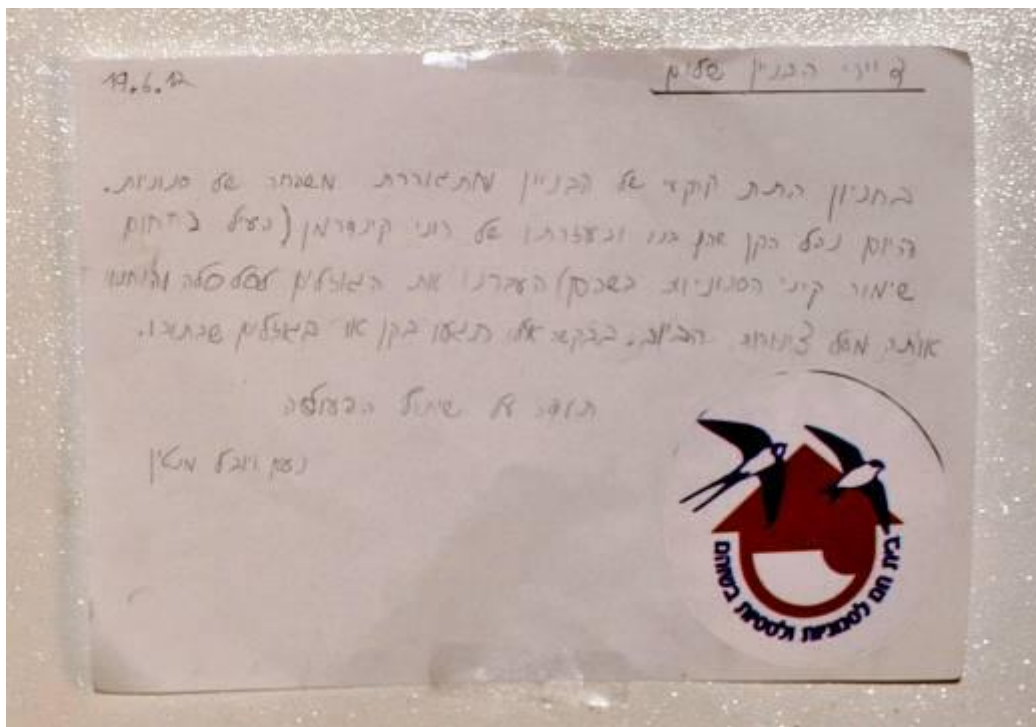 דיירי הבניין שלום
19.6.12
בחניון התת קרקעי של הבניין מתגוררת משפחה של סנוניות.
היום נפל הקן שהן בנו ובעזרתו של רוני קינדרמן (פעיל בתחום
שימור קיני הסנוניות בשוהם) העברנו את הגוזלים לסלסלה והנחנו
אותה מעל צינורות הביוב. בבקשה אל תגעו בקן או בגוזלים שבתוכו.
תודה על שיתוף הפעולה
נעם ויובל
בית חם לסנוניות ולסיסיות בשוהם